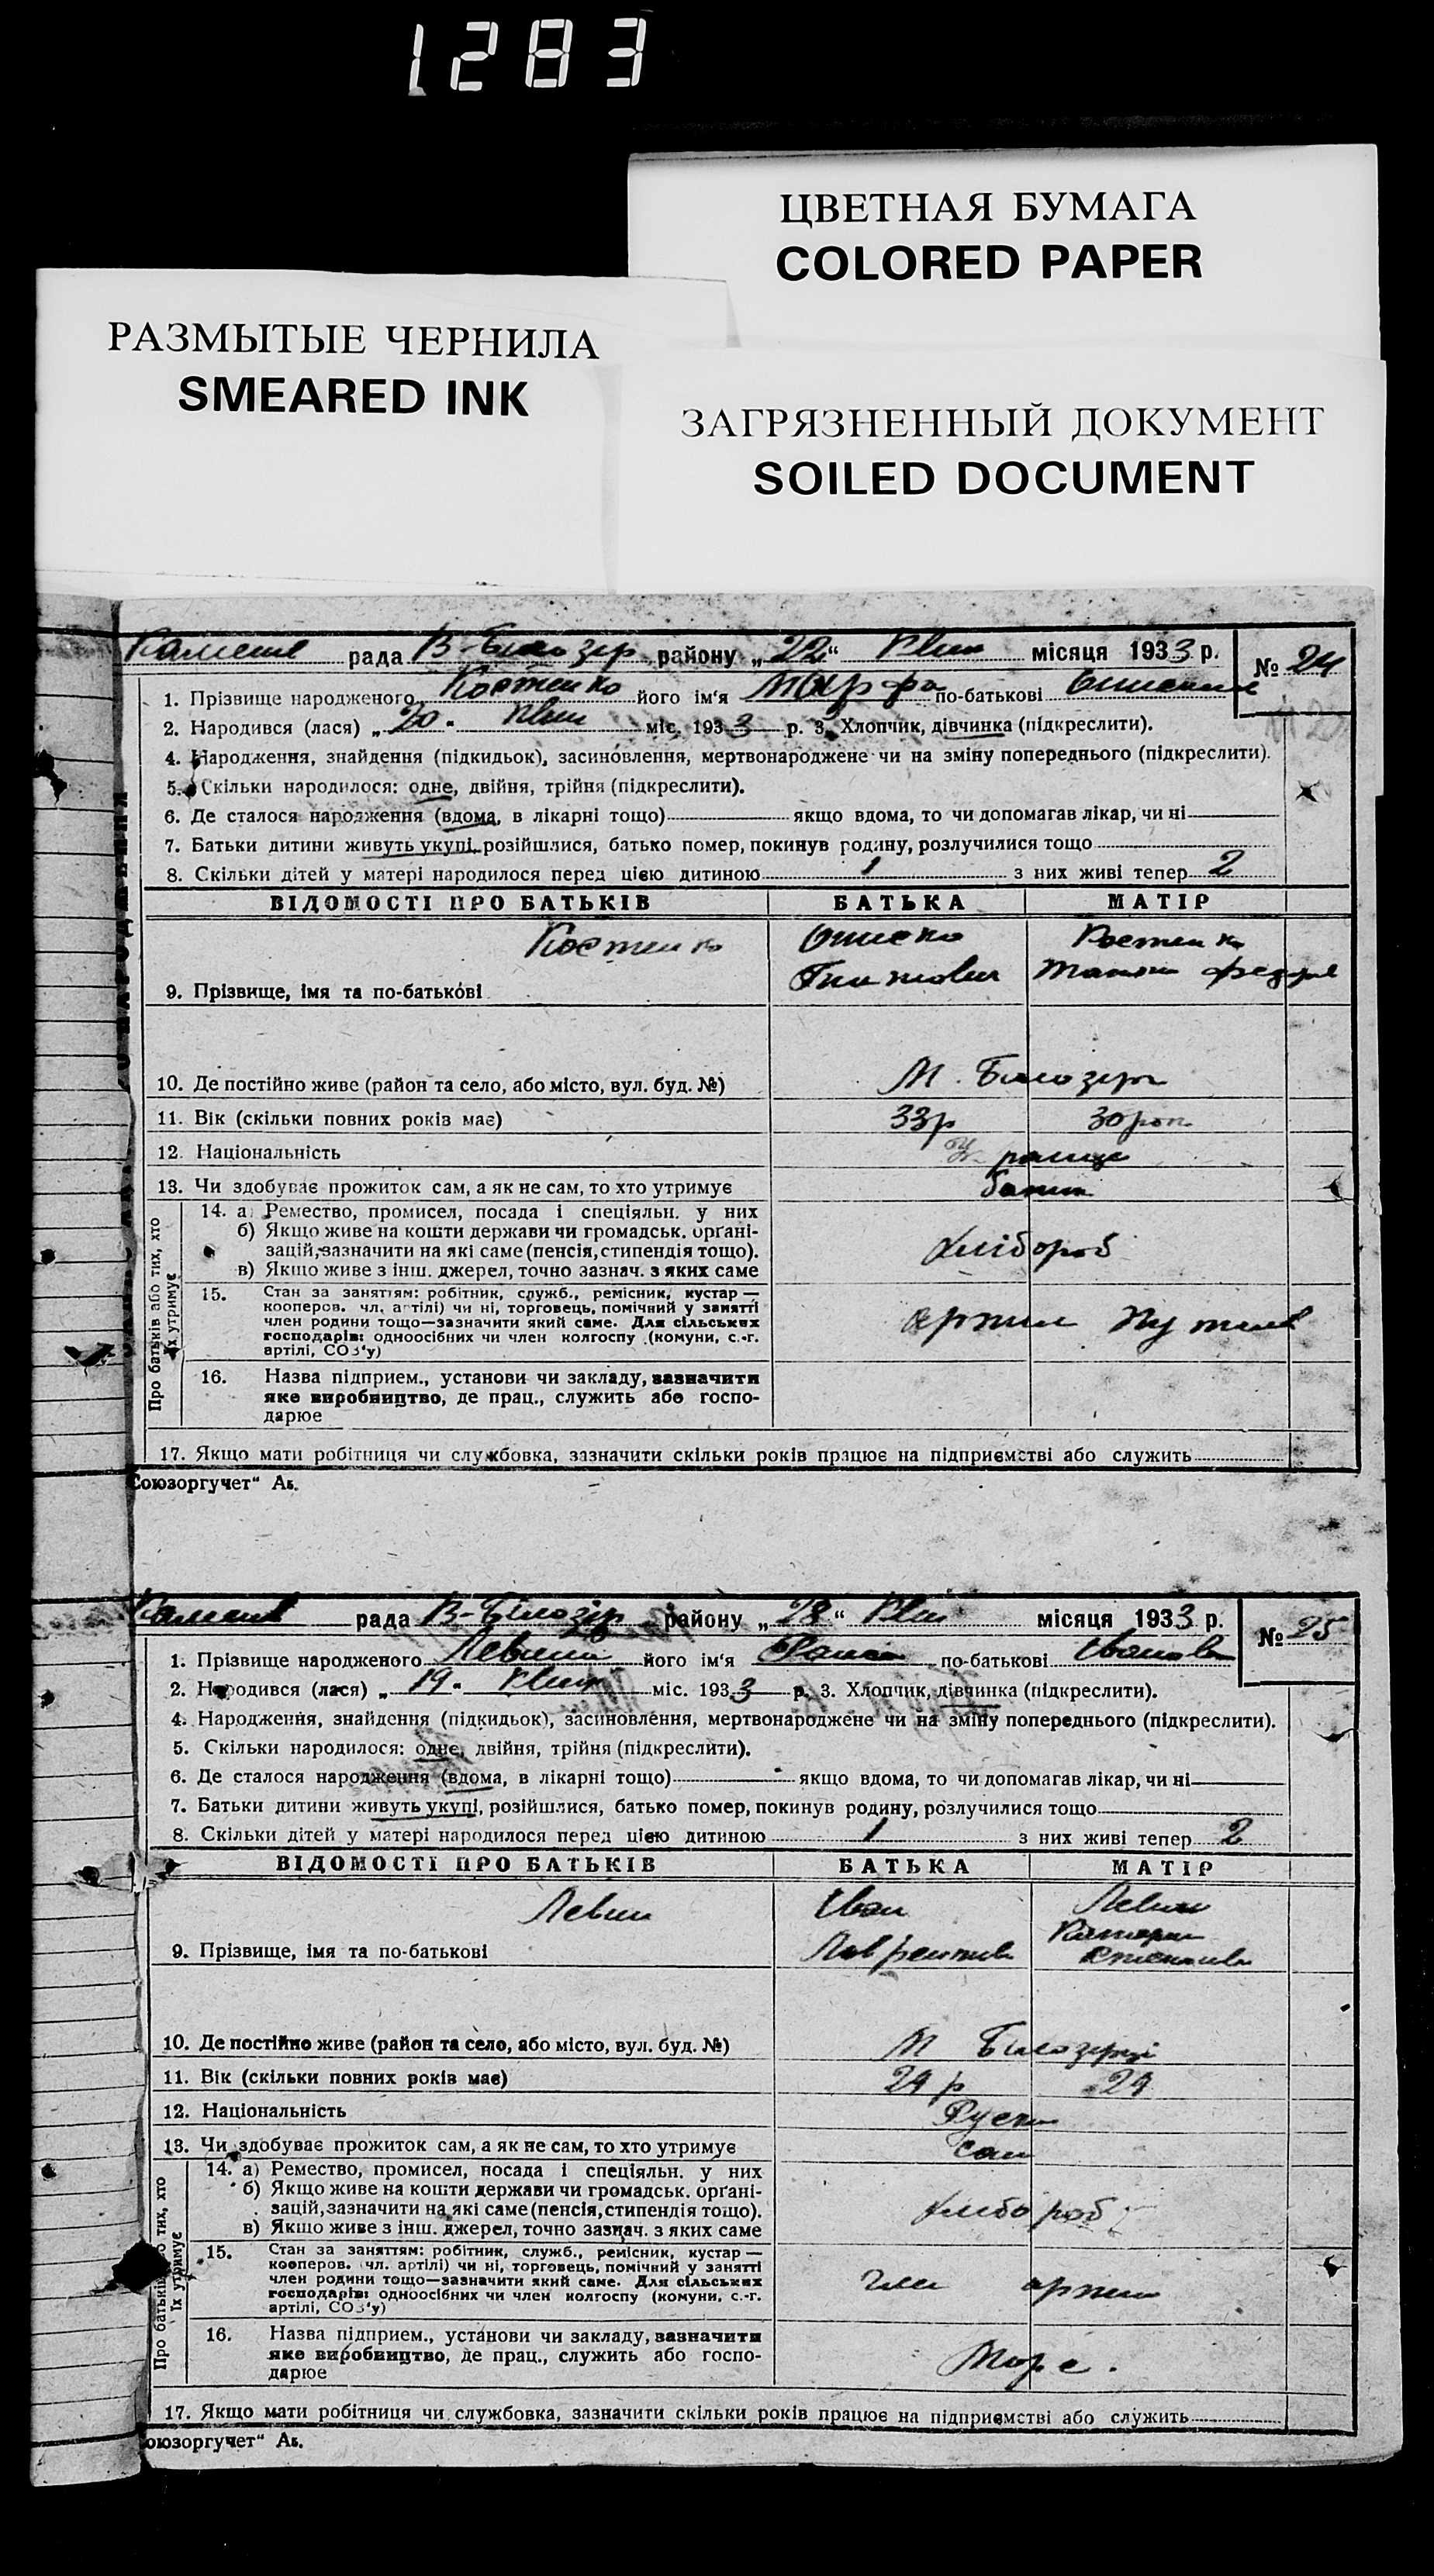 1283
ЦВЕТНАЯ БУМАГА
COLORED PAPER
РАЗМЫТЫЕ ЧЕРНИЛА
SMEARED INK
ЗАГРЯЗНЕННЫЙ ДОКУМЕНТ
SOILED DOCUMENT
рада В-Білозір району „22“ місяця 1933 р. № 24
1. Прізвище народженого Костенко його ім'я Марфа по-батькові
2. Народився (лася) „20“ міс. 1933 р. 3. Хлопчик, дівчинка (підкреслити).
4. Народження, знайдення (підкидьок), засиновлення, мертвонароджене чи на зміну попереднього (підкреслити).
5. Скільки народилося: одне, двійня, трійня (підкреслити).
6. Де сталося народження (вдома, в лікарні тощо) якщо вдома, то чи допомагав лікар, чи ні
7. Батьки дитини живуть укупі, розійшлися, батько помер, покинув родину, розлучилися тощо
8. Скільки дітей у матері народилося перед цією дитиною 1 з них живі тепер 2
ВІДОМОСТІ ПРО БАТЬКІВ БАТЬКА МАТІР
Костенко Костенко
9. Прізвище, імя та по-батькові
10. Де постійно живе (район та село, або місто, вул. буд. №) М. Білозерк
11. Вік (скільки повних років має) 33р 30 рок
12. Національність
13. Чи здобуває прожиток сам, а як не сам, то хто утримує
Про батьків або тих, хто їх утримує
14. а) Ремество, промисел, посада і спеціяльн. у них
б) Якщо живе на кошти держави чи громадськ. органі-
зацій, зазначити на які саме (пенсія, стипендія тощо). хлібороб
в) Якщо живе з інш. джерел, точно зазнач. з яких саме
15. Стан за заняттям: робітник, служб., ремісник, кустар —
кооперов. чл. артілі) чи ні, торговець, помічний у занятті
член родини тощо—зазначити який саме. Для сільських
господарів: одноосібних чи член колгоспу (комуни, с.-г.
артілі, СОЗ'у)
16. Назва підприєм., установи чи закладу, зазначити
яке виробництво, де прац., служить або госпо-
дарює
17. Якщо мати робітниця чи службовка, зазначити скільки років працює на підприємстві або служить
Союзоргучет“ Аь.
рада В-Білозір району „28“ місяця 1933 р. № 25
1. Прізвище народженого його ім'я по-батькові Іванова
2. Народився (лася) „19“ міс. 1933 р. 3. Хлопчик, дівчинка (підкреслити).
4. Народження, знайдення (підкидьок), засиновлення, мертвонароджене чи на зміну попереднього (підкреслити).
5. Скільки народилося: одне, двійня, трійня (підкреслити).
6. Де сталося народження (вдома, в лікарні тощо) якщо вдома, то чи допомагав лікар, чи ні
7. Батьки дитини живуть укупі, розійшлися, батько помер, покинув родину, розлучилися тощо
8. Скільки дітей у матері народилося перед цією дитиною 1 з них живі тепер 2
ВІДОМОСТІ ПРО БАТЬКІВ БАТЬКА МАТІР
Іван
9. Прізвище, імя та по-батькові
10. Де постійно живе (район та село, або місто, вул. буд. №) М Білозерці
11. Вік (скільки повних років має) 29 р 29
12. Національність
13. Чи здобуває прожиток сам, а як не сам, то хто утримує сам
Про батьків або тих, хто їх утримує
14. а) Ремество, промисел, посада і спеціяльн. у них
б) Якщо живе на кошти держави чи громадськ. органі-
зацій, зазначити на які саме (пенсія, стипендія тощо). хлібороб
в) Якщо живе з інш. джерел, точно зазнач. з яких саме
15. Стан за заняттям: робітник, служб., ремісник, кустар —
кооперов. чл. артілі) чи ні, торговець, помічний у занятті
член родини тощо—зазначити який саме. Для сільських
господарів: одноосібних чи член колгоспу (комуни, с.-г.
артілі, СОЗ'у)
16. Назва підприєм., установи чи закладу, зазначити
яке виробництво, де прац., служить або госпо-
дарює
17. Якщо мати робітниця чи службовка, зазначити скільки років працює на підприємстві або служить
оюзоргучет“ Аь.